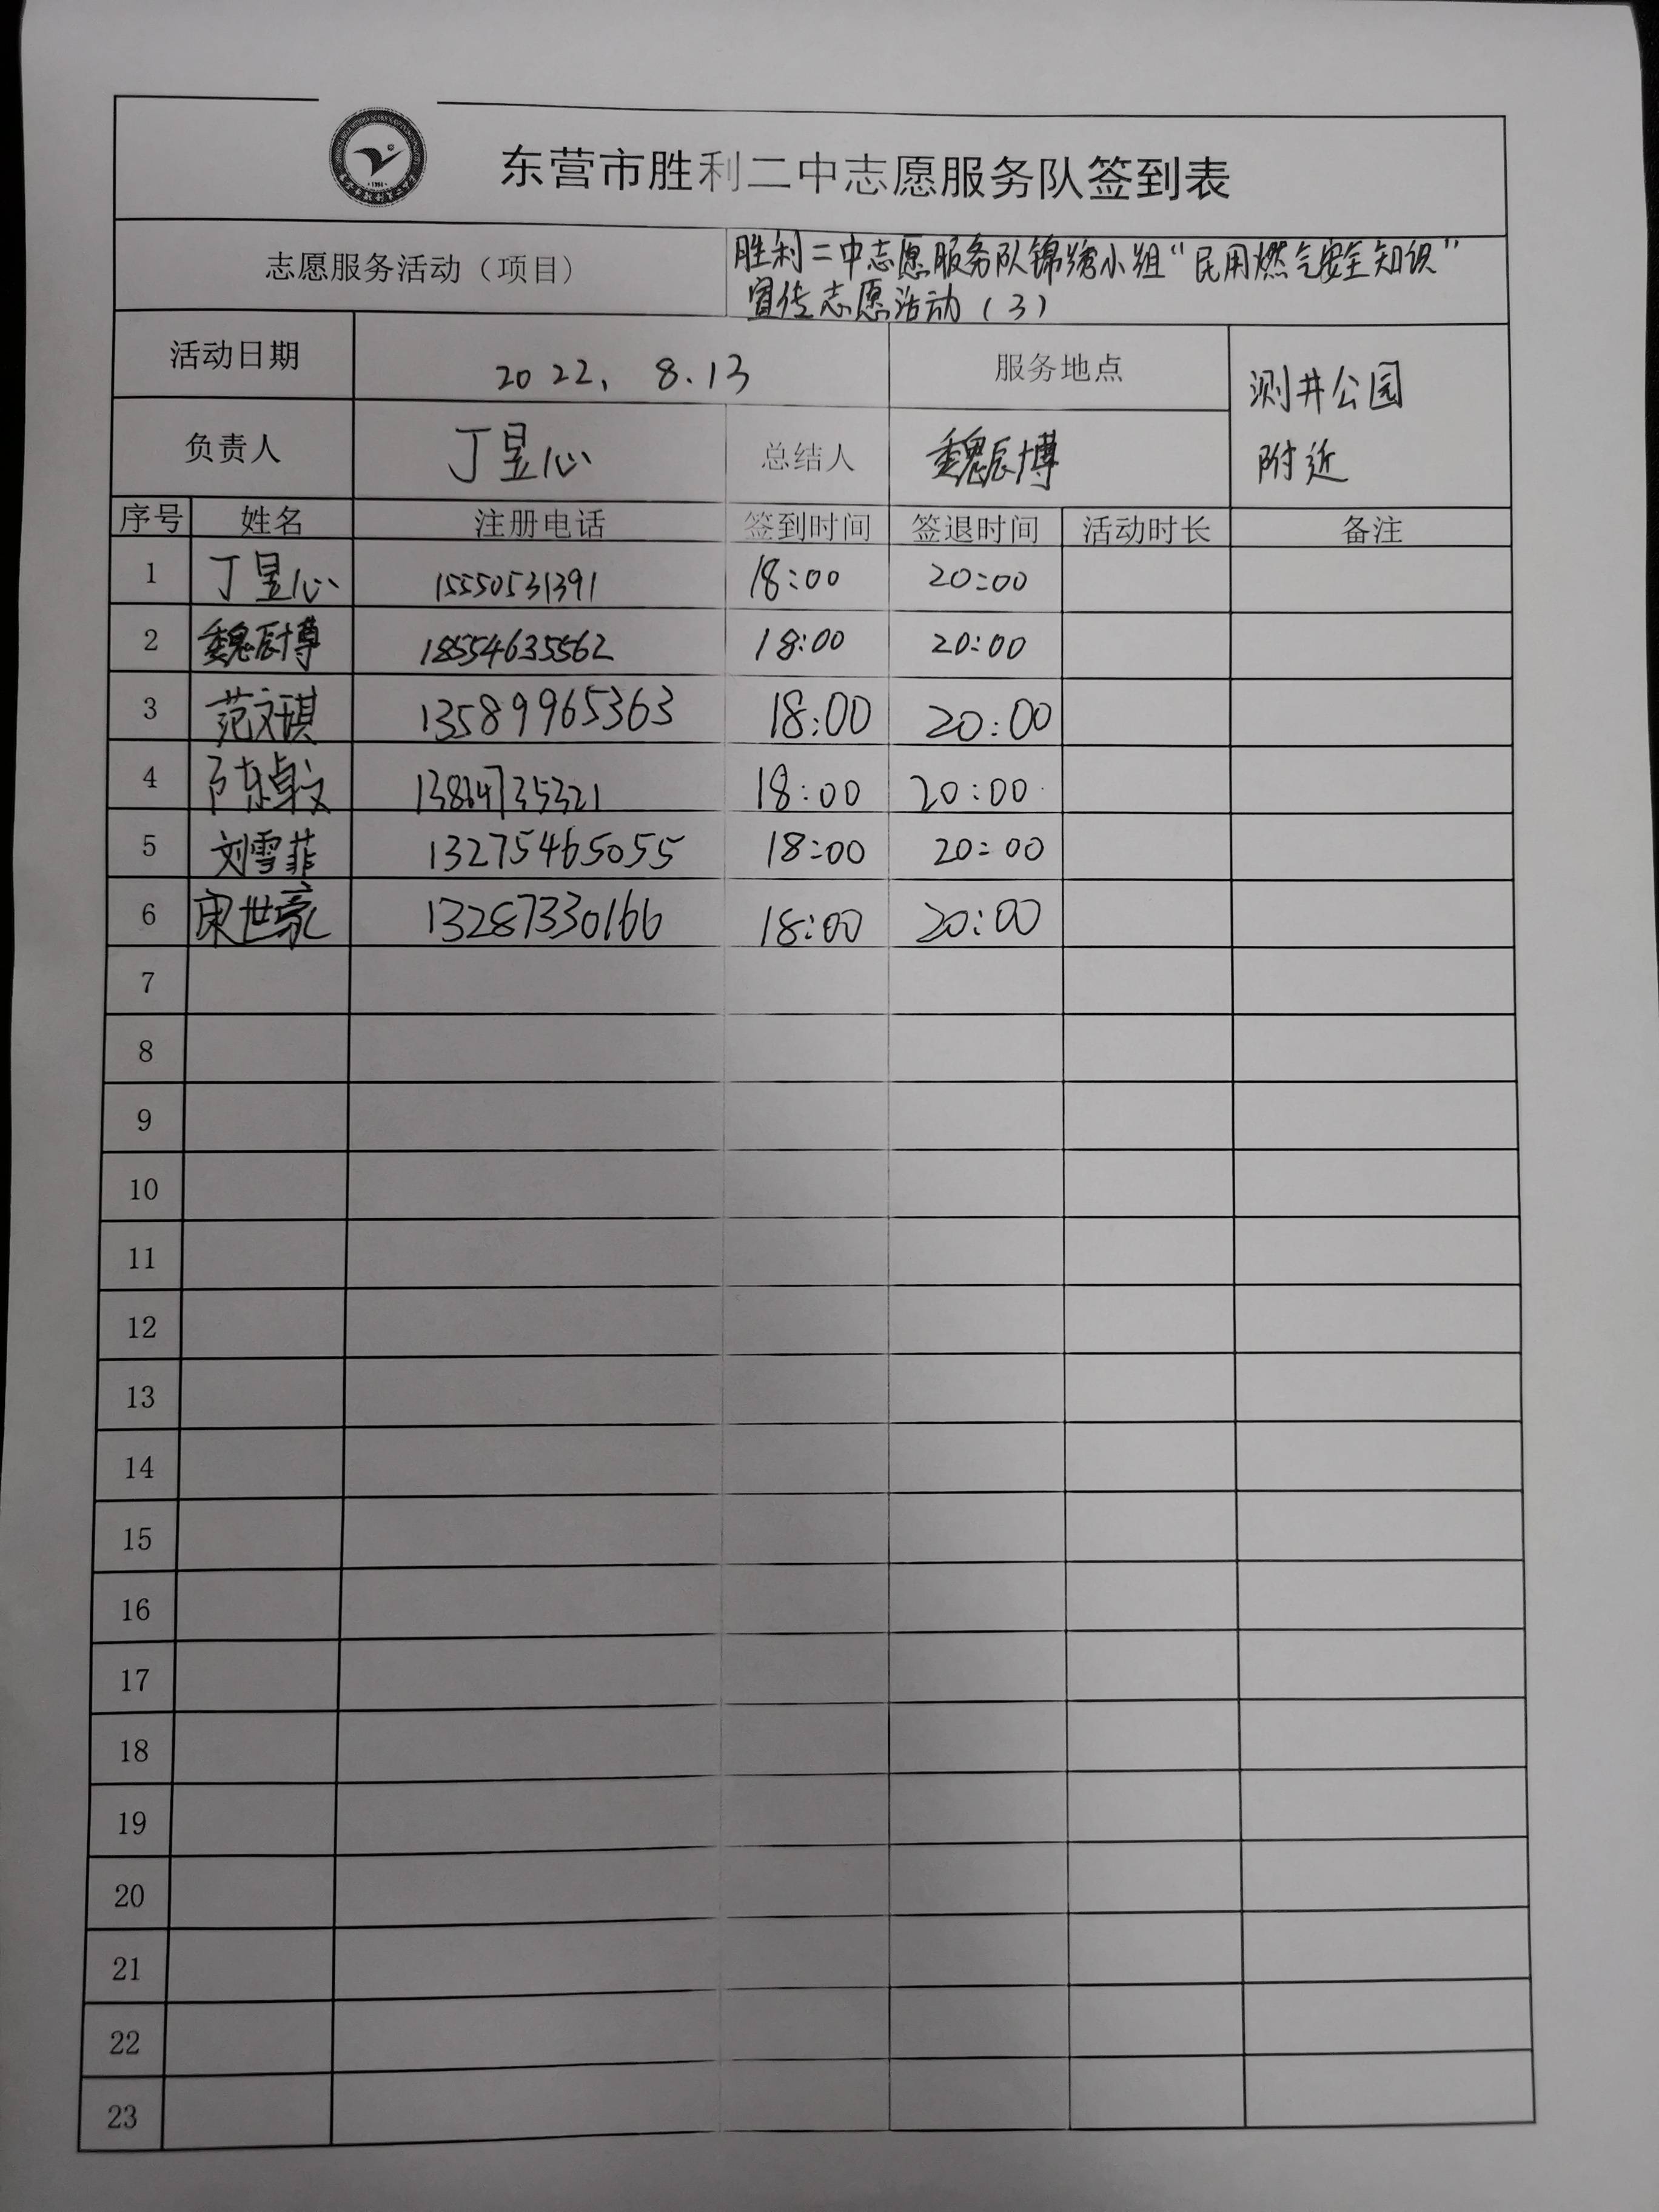 东营市胜利二中志愿服务队签到表
志愿服务活动（项目） 胜利二中志愿服务队锦绣小组“民用燃气安全知识”
宣传志愿活动（3）
活动日期 2022. 8.13 服务地点 测井公园
附近
负责人 丁昱心 总结人 魏辰博
序号 姓名 注册电话 签到时间 签退时间 活动时长 备注
1 丁昱心 15550531391 18:00 20:00
2 魏辰博 18554635562 18:00 20:00
3 范文琪 13589965363 18:00 20:00
4 陈卓文 18:00 20:00
5 刘雪菲 13275465055 18:00 20:00
6 宋世豪 13287330166 18:00 20:00
7
8
9
10
11
12
13
14
15
16
17
18
19
20
21
22
23